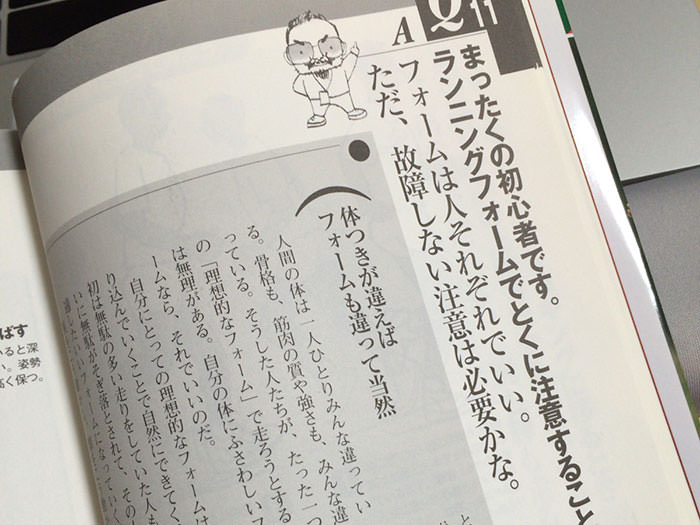 Q 11
まったくの初心者です。
ランニングフォームでとくに注意すること
A
フォームは人それぞれでいい。
ただ、故障しない注意は必要かな。
体つきが違えば
フォームも違って当然
人間の体は一人ひとりみんな違ってい
る。骨格も、筋肉の質や強さも、みんな違
っている。そうした人たちが、たった一つ
の「理想的なフォーム」で走ろうとする
は無理がある。自分の体にふさわしいフ
ームなら、それでいいのだ。
自分にとっての理想的なフォームは
り込んでいくことで自然にできてく
初は無駄の多い走りをしていた人も
いに無駄がそぎ落とされて、その
ばす
いると深
い。姿勢
高く保つ。